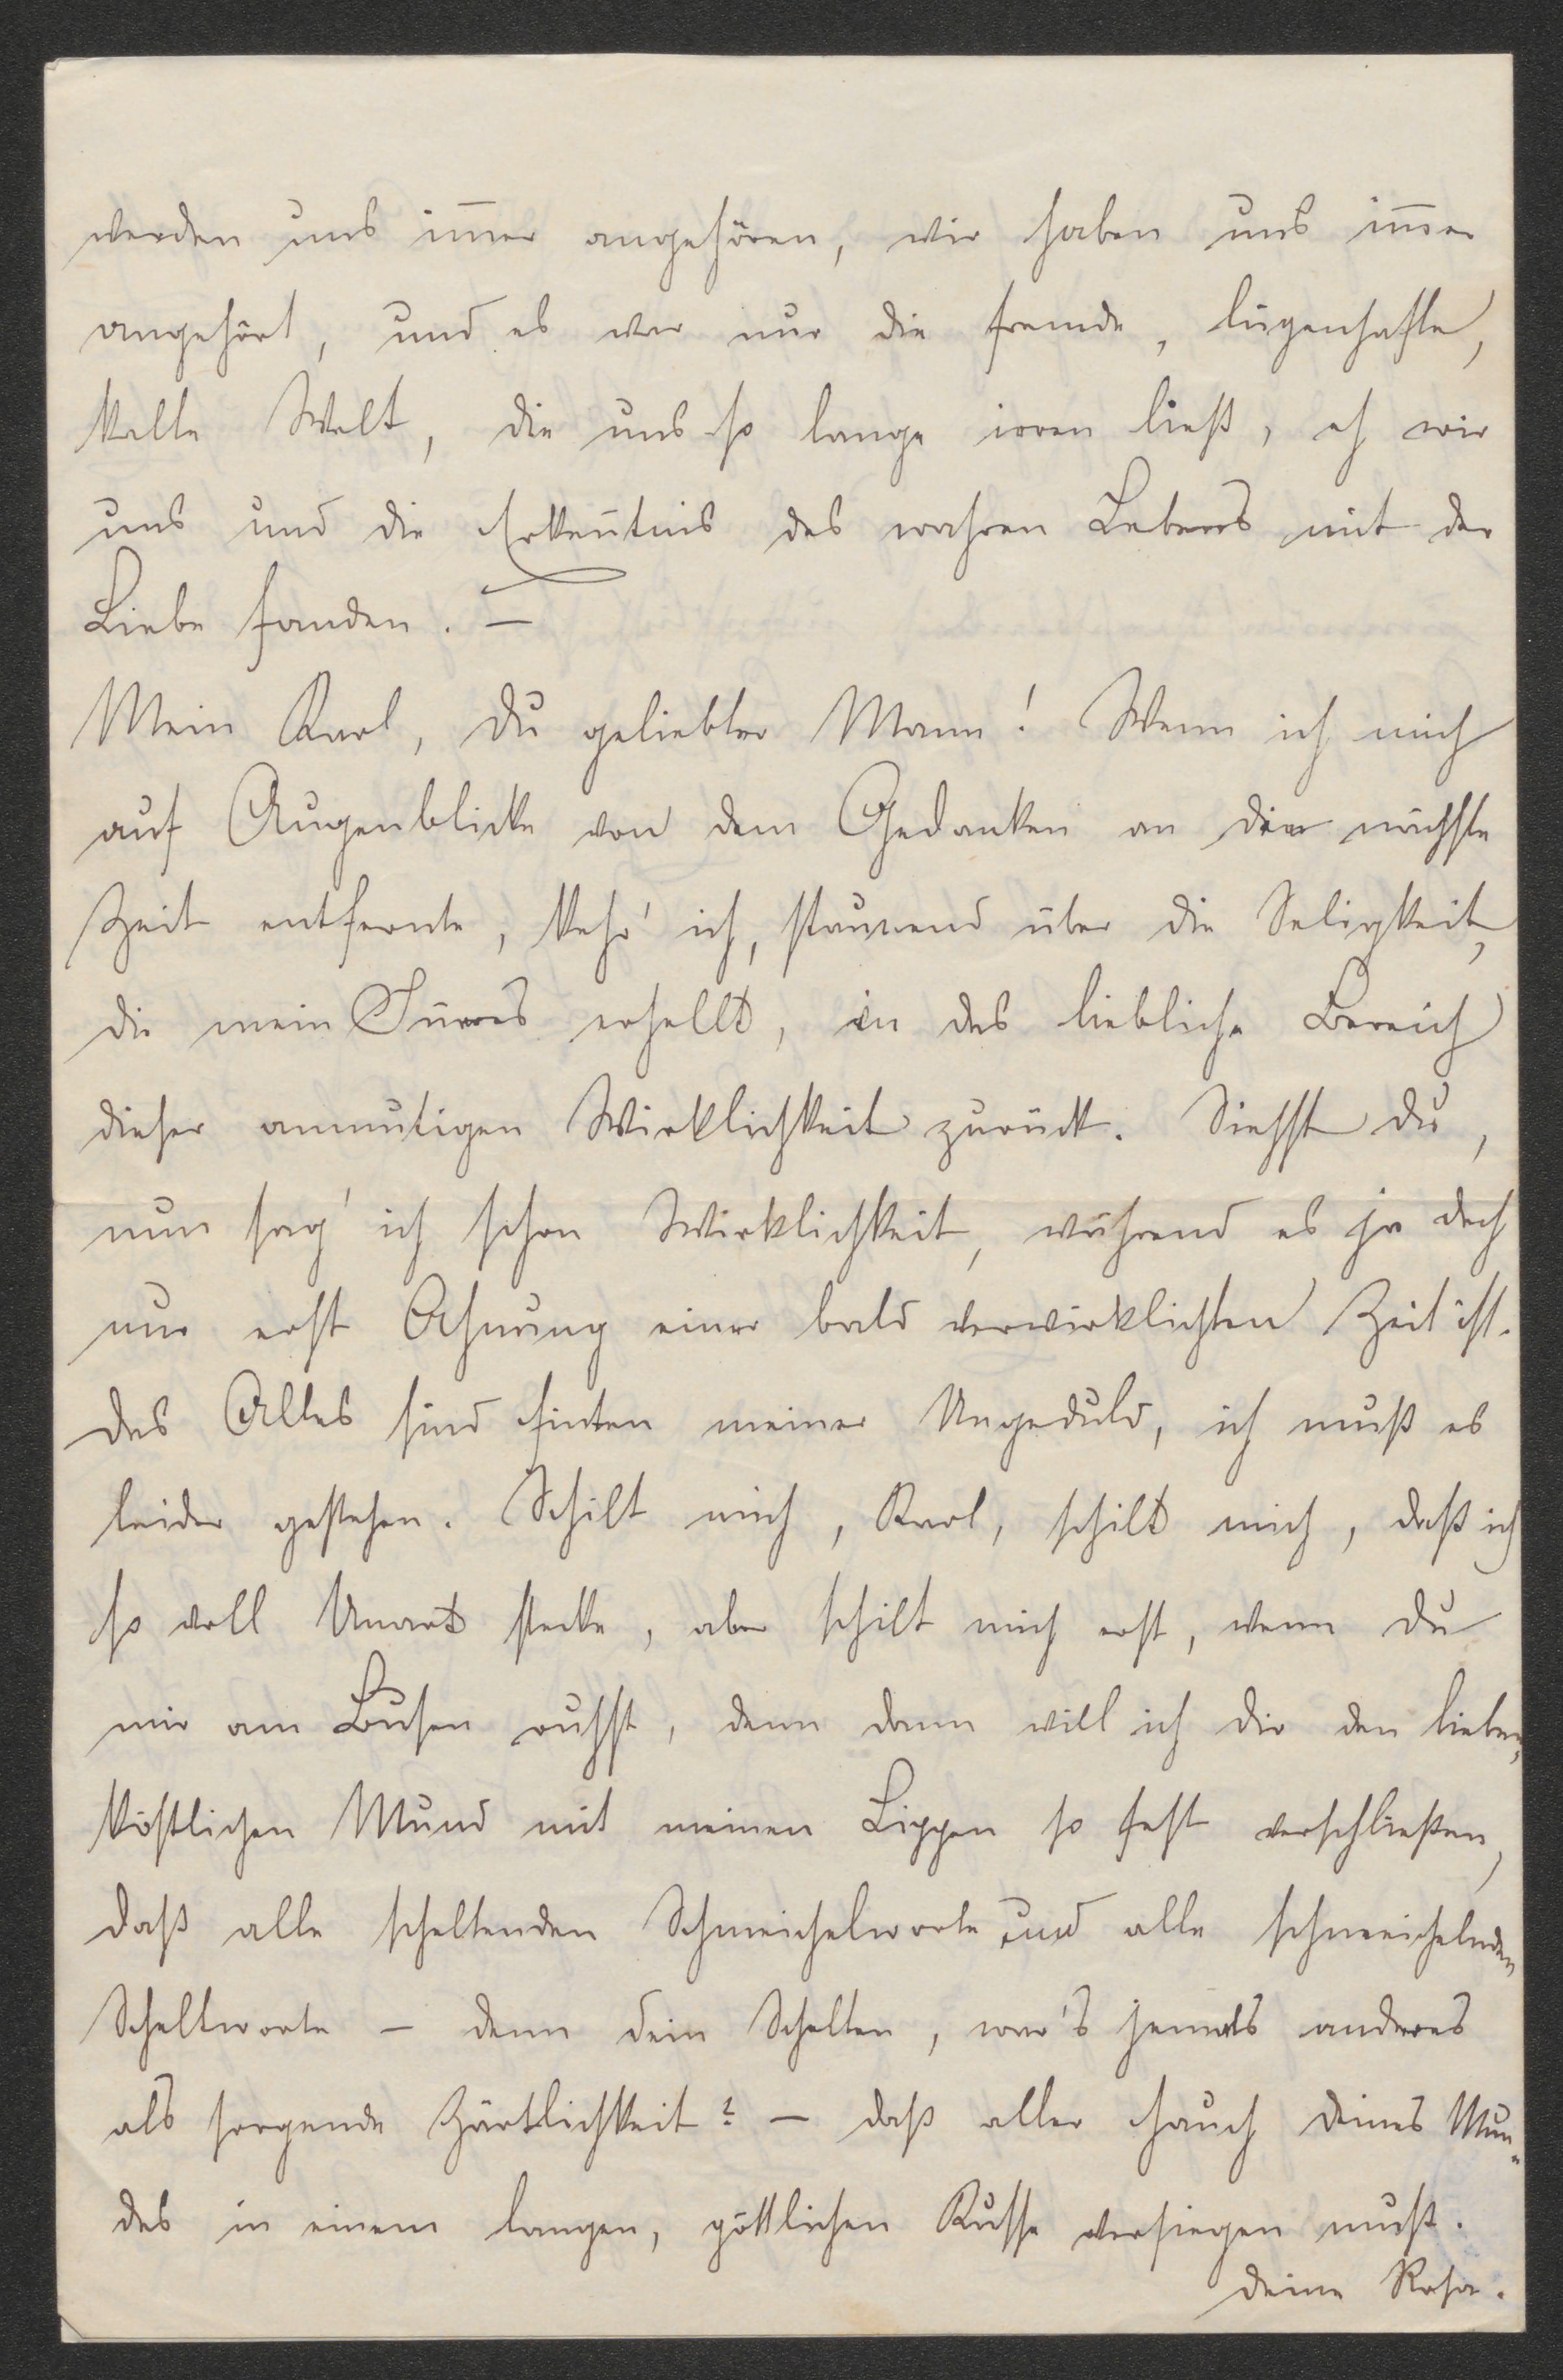 werden uns im̄er angehören, wir haben uns im̄er
angehört, und es war nur die fremde, lügenhafte,
kalte Welt, die uns so lange irren ließ, eh wir
uns und die Erken̄tnis des wahren Lebens mit der
Liebe fanden. –
Mein Karl, Du geliebter Mann! Wenn ich mich
auf Augenblicke von dem Gedanken an die nächste
Zeit entfernte, kehr' ich, staunend über die Seligkeit,
die mein In̄eres erhellt, in das liebliche Bereich
dieser anmutigen Wirklichkeit zurück. Siehst Du,
nun sag' ich schon Wirklichkeit, während es ja doch
nur erst Ahnung einer bald verwirklichten Zeit ist.
Das Alles sind Finten meiner Ungeduld, ich muß es
leider gestehen. Schilt mich, Karl, schilt mich, daß ich
so voll Unart stecke, aber schilt mich erst, wenn Du
mir am Busen ruhst, denn dann will ich Dir den lieben,
köstlichen Mund mit meinen Lippen so fest verschließen,
daß alle scheltenden Schmeichelworte und alle schmeichelnden
Scheltworte – denn Dein Schelten, war's jemals anderes
als sorgende Zärtlichkeit? – daß aller Hauch Deines Mun-
des in einem langen, göttlichen Kusse versiegen muß.
Deine Rosa.